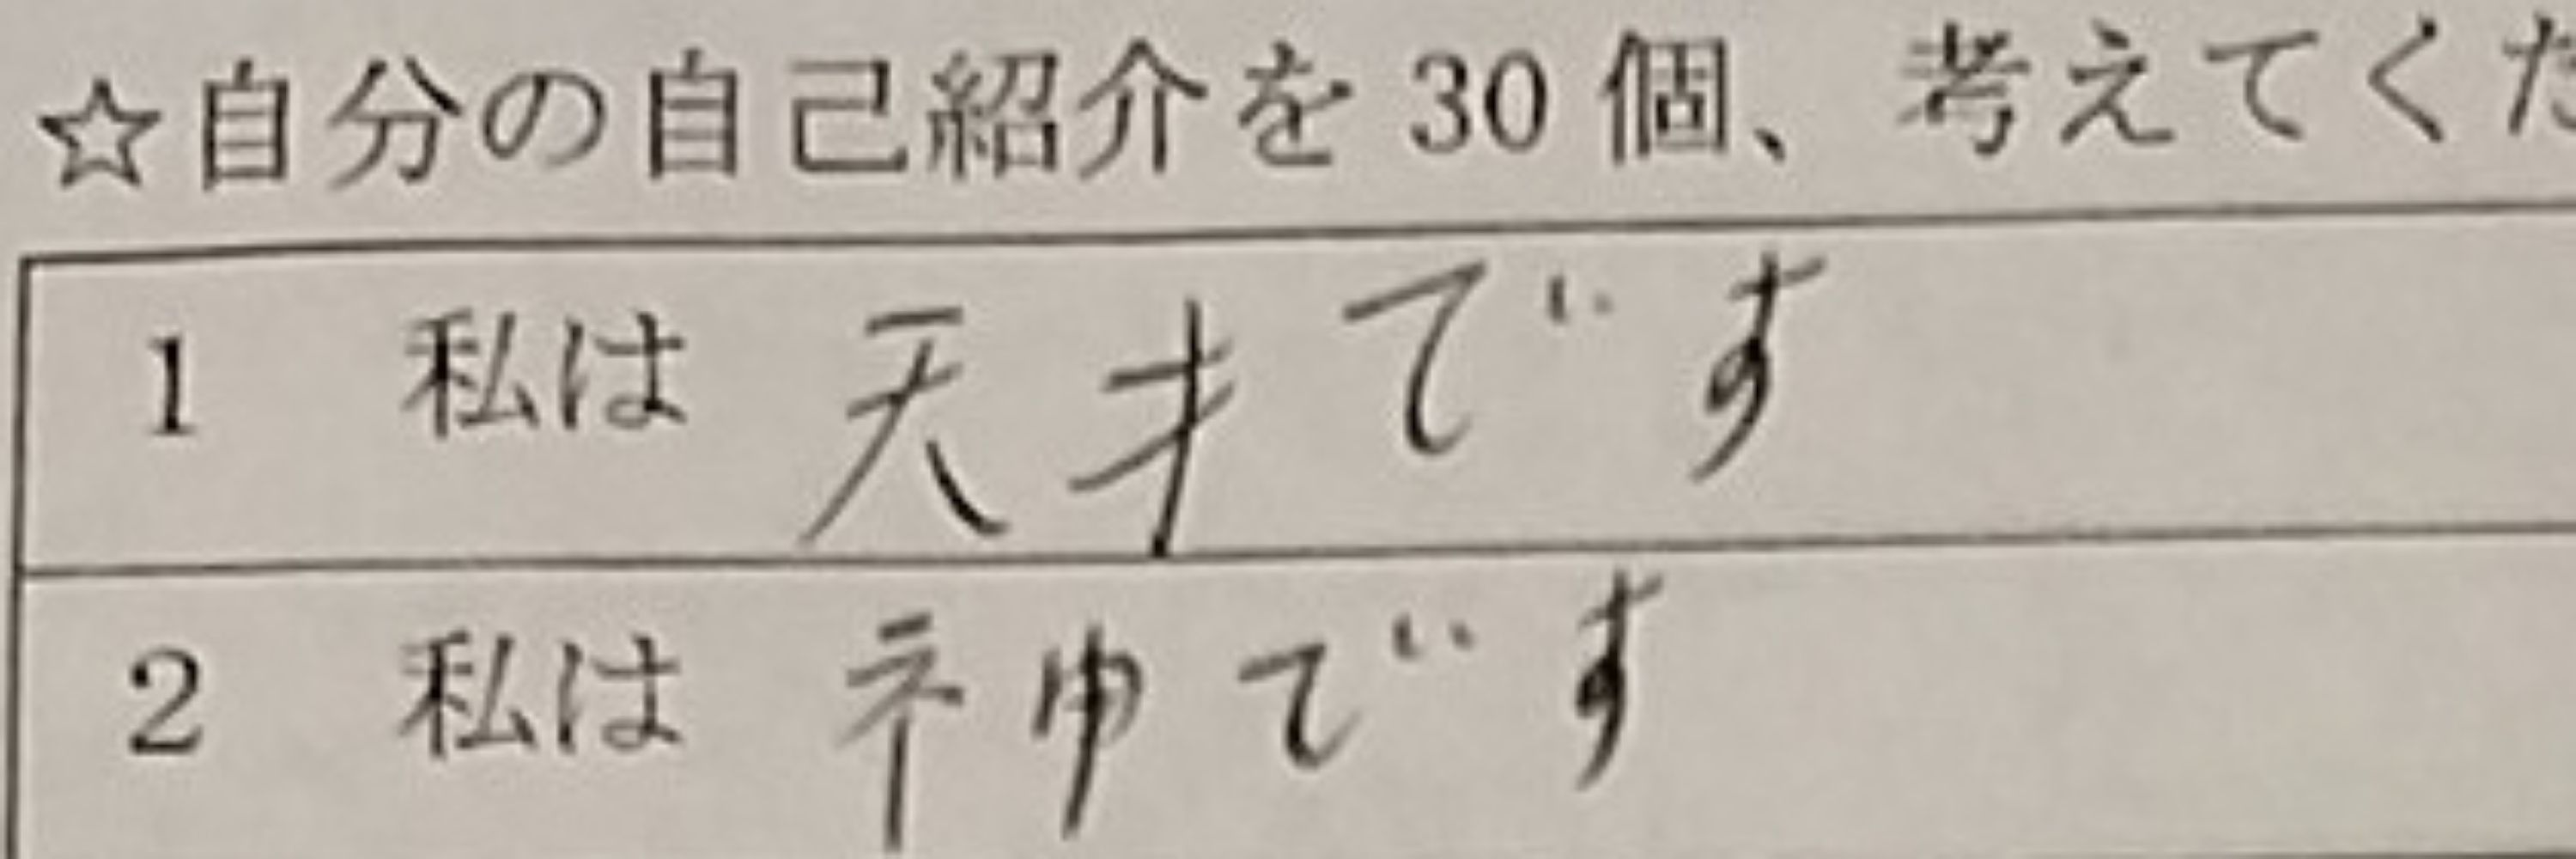 ☆自分の自己紹介を 30 個、考えてくだ
1 私は 天才です
2 私は 神です